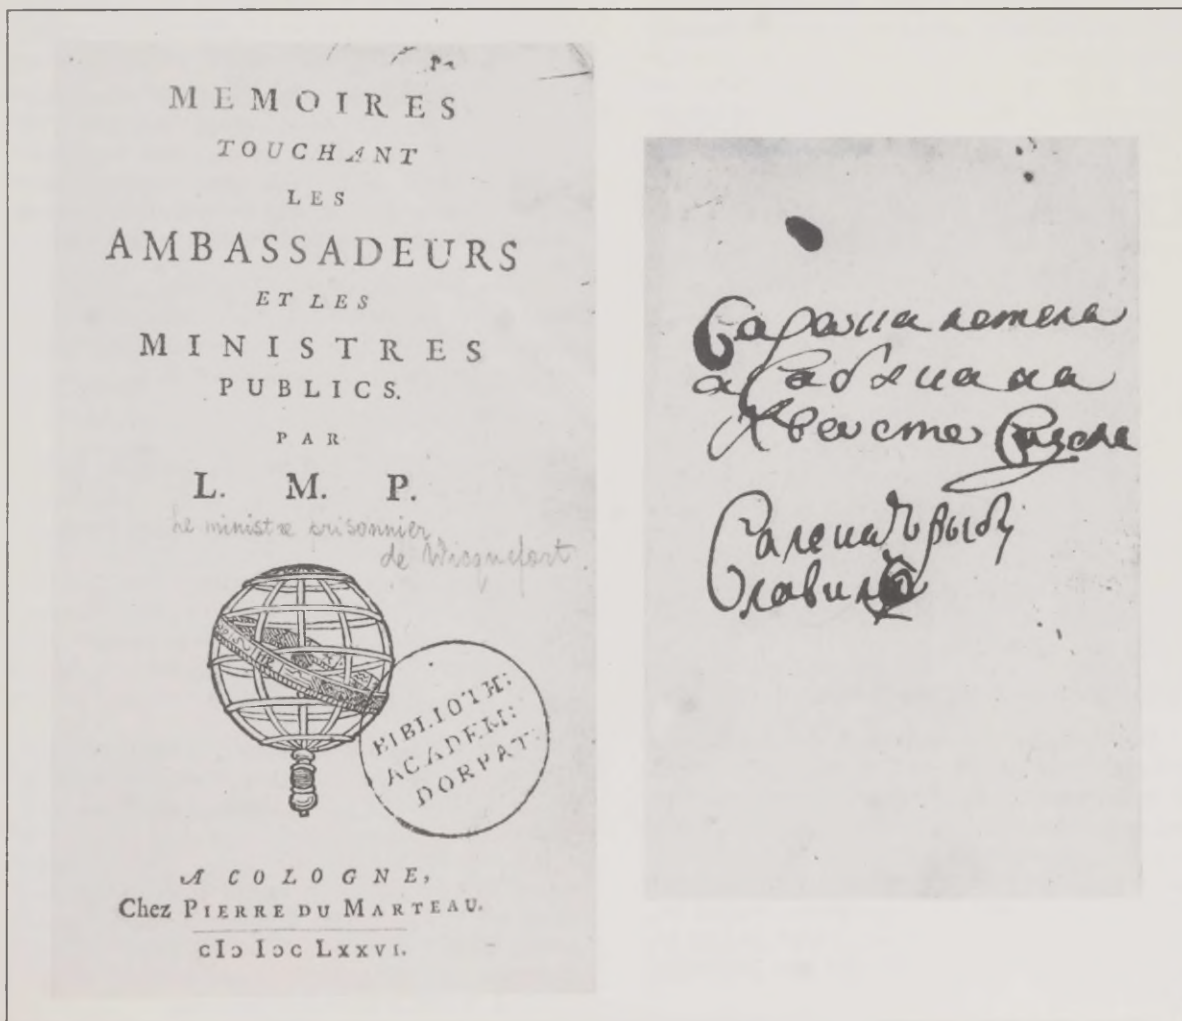 MEMOIRES
TOUCHANT
LES
AMBASSADEURS
ET LES
MINISTRES
PUBLICS.
PAR
L. M. P.
Le ministre prisonnier
de Wicquefort
BIBLIOTH:
ACADEM:
DORPAT:
A COLOGNE,
Chez PIERRE DU MARTEAU.
cIↄ Iↄc LXXVI.
Сарака летела
а Сабака на
Хвасте Сидела